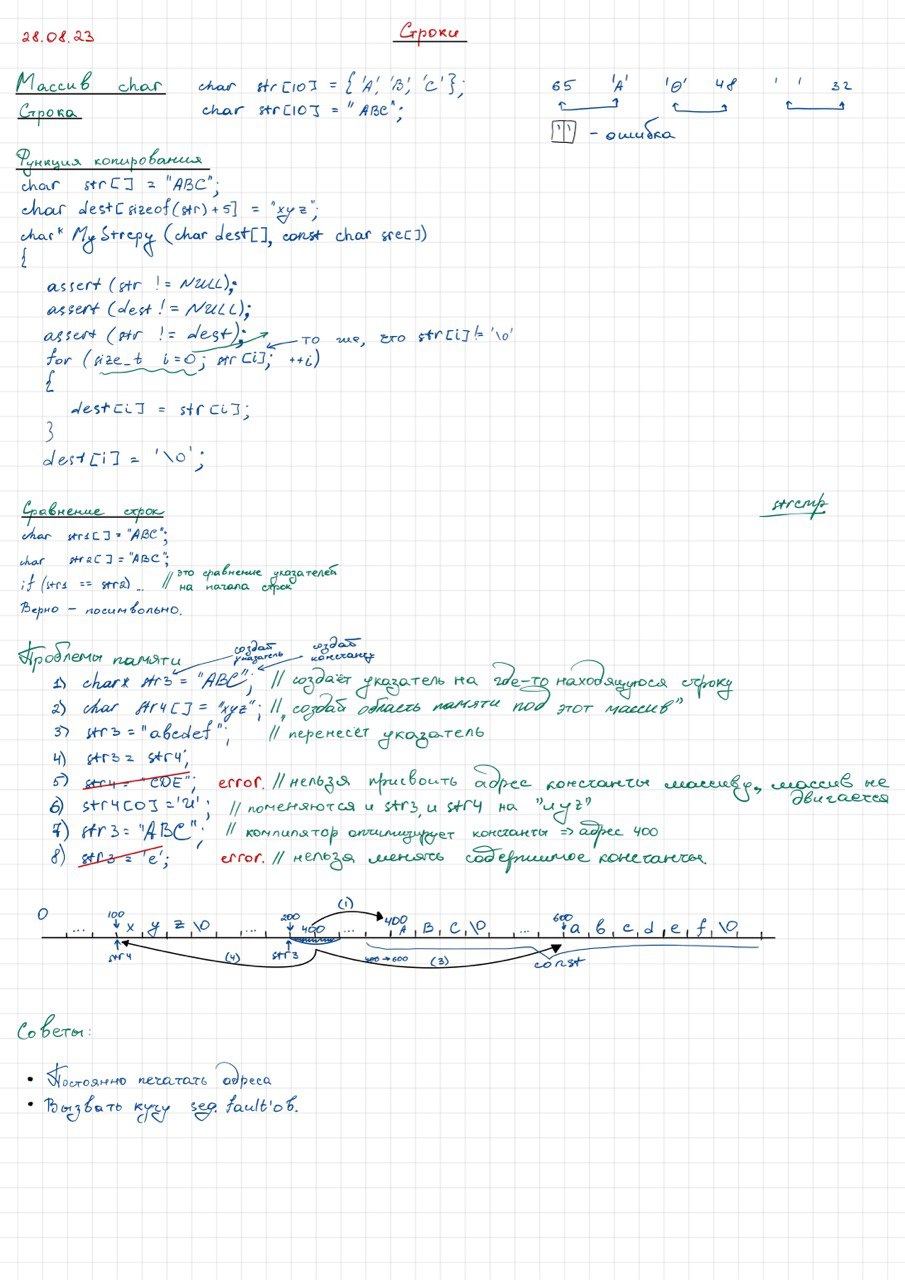 28.08.23
Строки
Массив char char str[10] = {'A', 'B', 'C'}; 65 'A' '0' 48 ' ' 32
Строка char str[10] = "ABC";
'' - ошибка
Функция копирования
char str[] = "ABC";
char dest[sizeof(str)+5] = "xyz";
char* MyStrcpy (char dest[], const char src[])
{
assert (str != NULL);
assert (dest != NULL);
assert (str != dest);
то же, что str[i] != '\0'
for (size_t i=0; str[i]; ++i)
{
dest[i] = str[i];
}
dest[i] = '\0';
Сравнение строк strcmp
char str1[] = "ABC";
char str2[] = "ABC";
if (str1 == str2) ... // это сравнение указателей
на начала строк
Верно - посимвольно.
Проблемы памяти
создай указатель
создай константу
1) char* str3 = "ABC"; // создаёт указатель на где-то находящуюся строку
2) char str4[] = "xyz"; // "создай область памяти под этот массив"
3) str3 = "abcdef"; // перенесёт указатель
4) str3 = str4;
5) str4 = "CDE"; error. // нельзя присвоить адрес константы массиву, массив не
двигается
6) str4[0] = 'u'; // поменяются и str3, и str4 на "uyz"
7) str3 = "ABC"; // компилятор оптимизирует константы => адрес 400
8) str3 = 'e'; error. // нельзя менять содержимое константы.
0 100 200 (1) 400 600
... x y z \0 ... 400 ... A B C \0 ... a b c d e f \0
str4 (4) str3 400→600 (3) const
Советы:
• Постоянно печатать адреса
• Вызвать кучу seg. fault'ов.